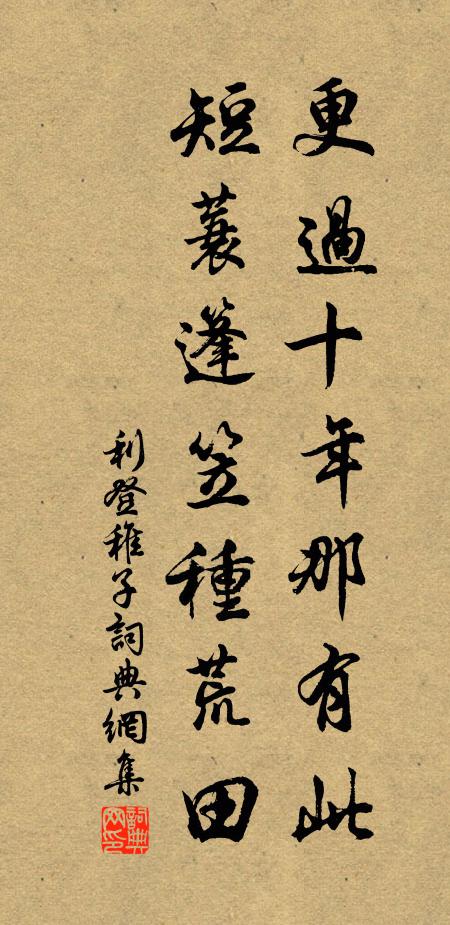 更過十年那有此
短蓑篷笠種荒田
利登稚子詞典網集
詞典網印